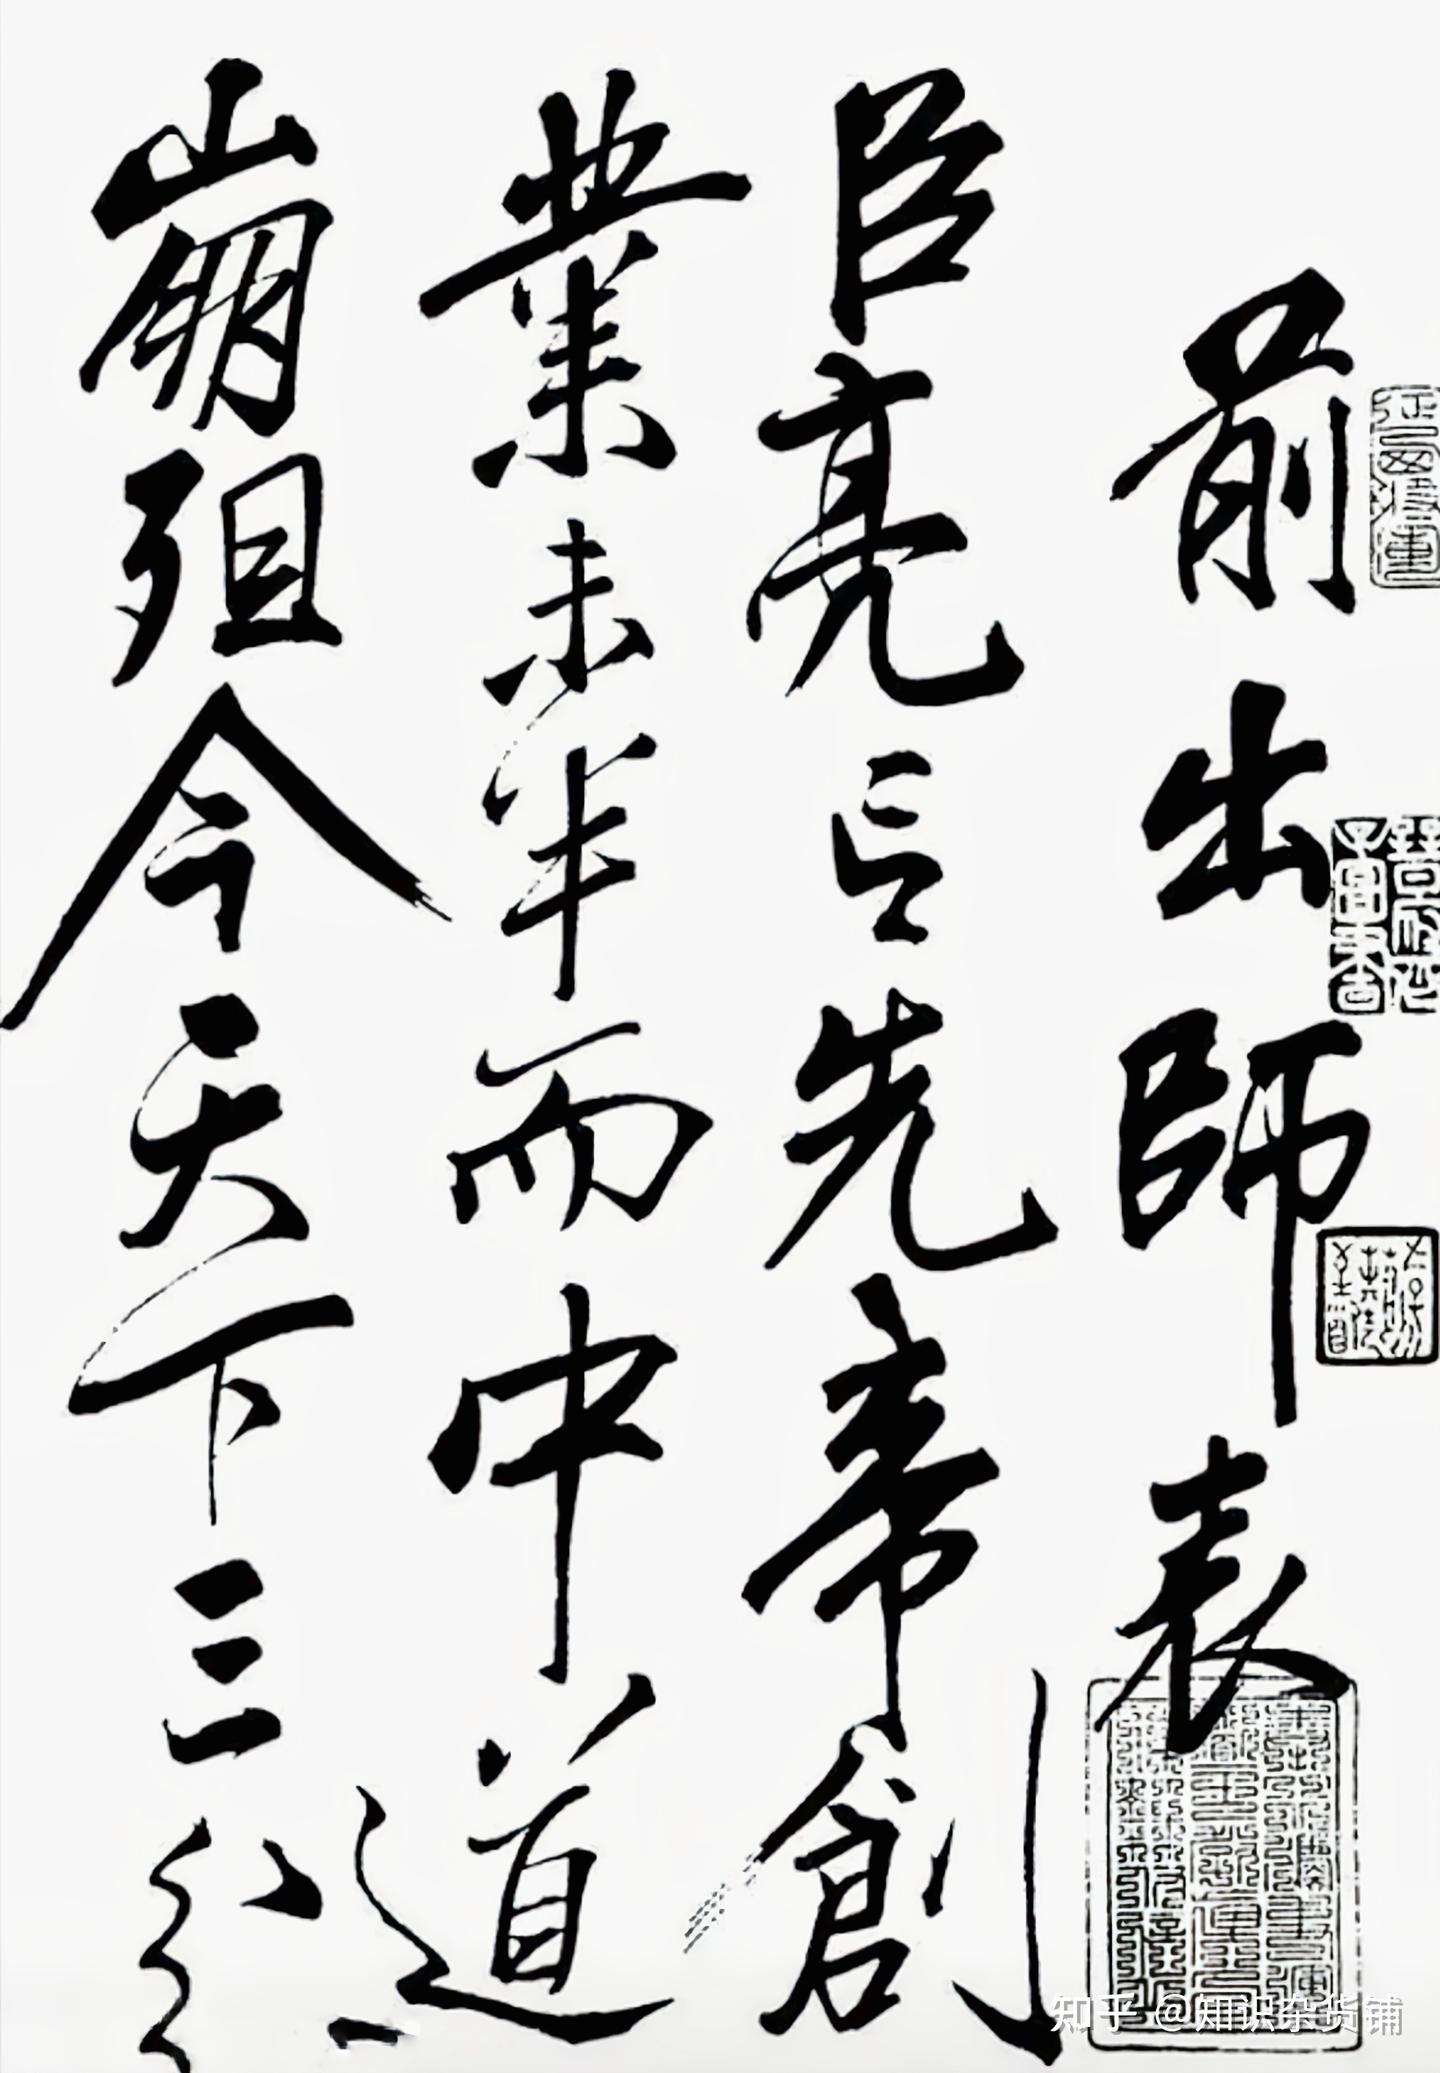 前出師表
臣亮言先帝創
業未半而中道
崩殂今天下三分
知乎 @知识杂货铺